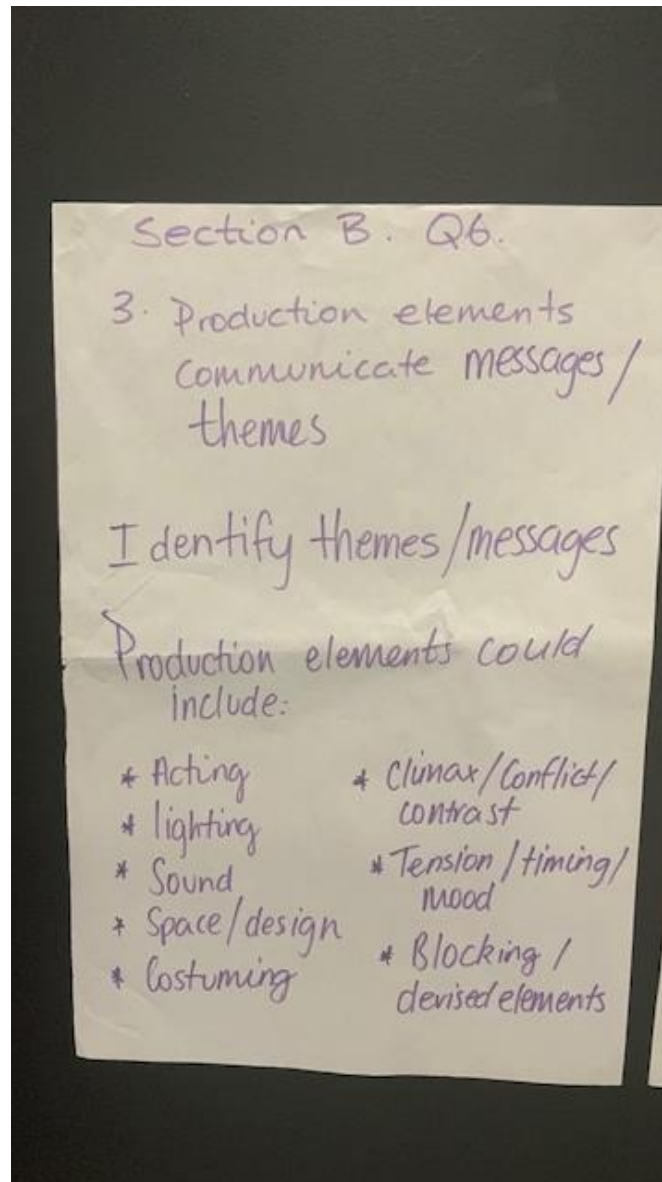 Section B. Q6.
3. Production elements
communicate messages/
themes
Identify themes/messages
Production elements could
include:
* Acting
* lighting
* Sound
* Space/design
* Costuming
* Climax/Conflict/
contrast
* Tension/timing/
mood
* Blocking/
devised elements